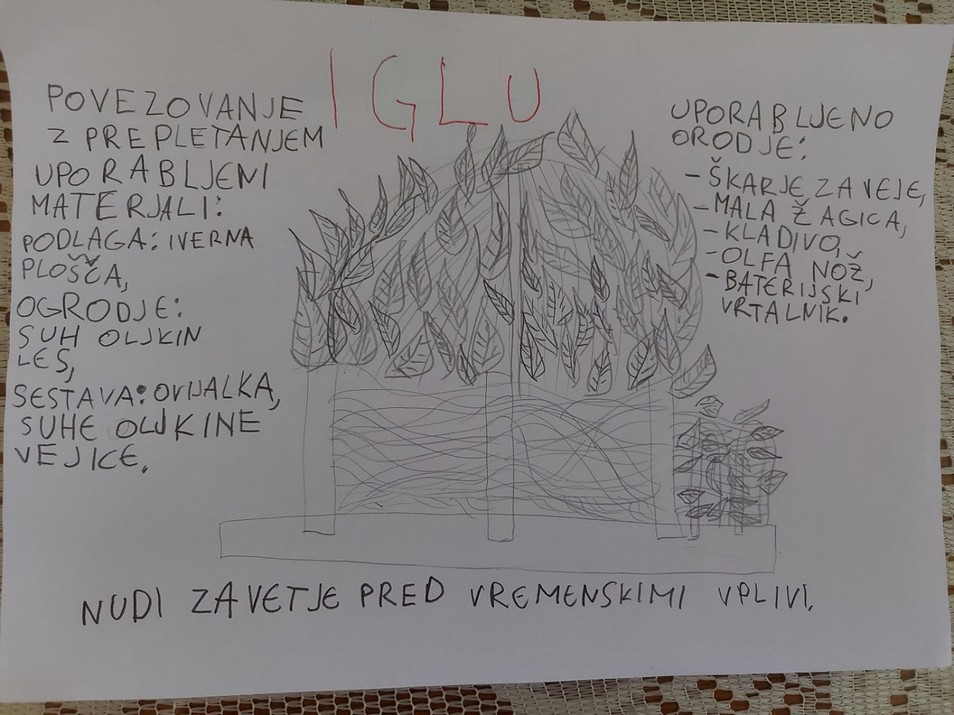 IGLU
POVEZOVANJE
Z PREPLETANJEM
UPORABLJENI
MATERJALI:
PODLAGA: IVERNA
PLOŠČA,
OGRODJE:
SUH OLJKIN
LES,
SESTAVA: OVIJALKA,
SUHE OLJKINE
VEJICE.
UPORABLJENO
ORODJE:
- ŠKARJE ZA VEJE,
- MALA ŽAGICA,
- KLADIVO,
- OLFA NOŽ,
- BATERIJSKI
VRTALNIK.
NUDI ZAVETJE PRED VREMENSKIMI VPLIVI.